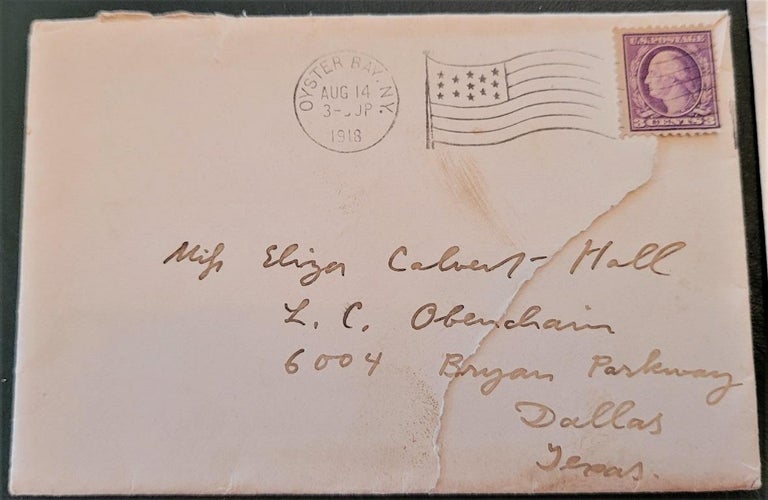 OYSTER BAY, N.Y.
AUG 14
3- P
1918
U.S. POSTAGE
3 CENTS 3
Miss Eliza Calvert Hall
L. C. Obenchain
6004 Bryan Parkway
Dallas
Texas.